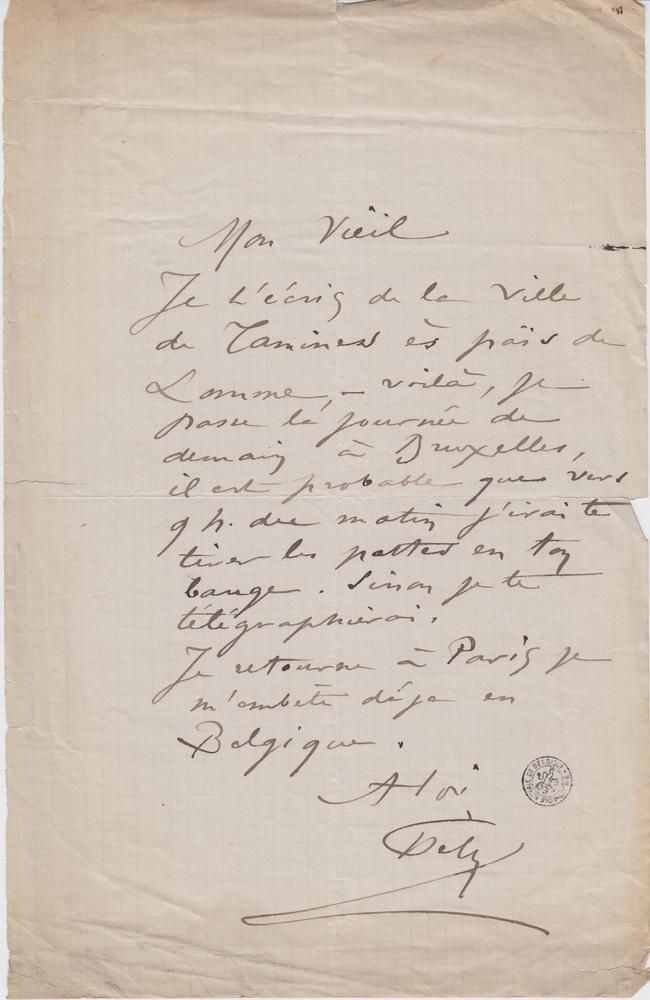 Mon Vieil
Je t'écris de la ville
de Tamines ès païs de
Lomme, – voilà, je
passe la journée de
demain à Bruxelles,
il est probable que vers
9 h. du matin j'irai te
tirer les pattes en ton
bauge. Sinon je te
télégraphierai.
Je retourne à Paris je
m'embête déja en
Belgique.
A toi